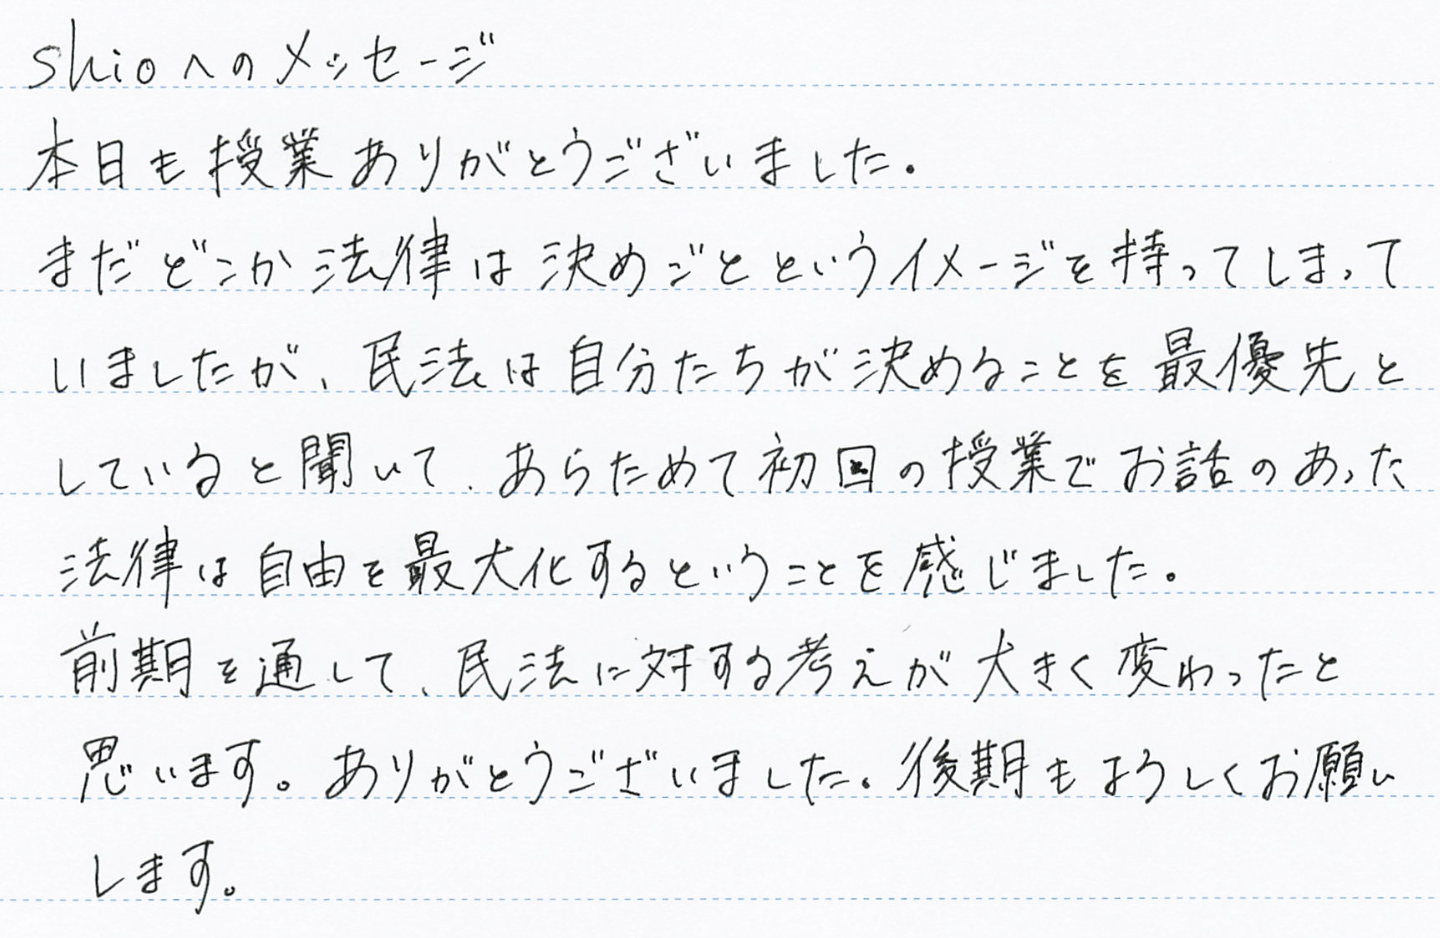 shioへのメッセージ
本日も授業ありがとうございました。
まだどこか法律は決めごとというイメージを持ってしまって
いましたが、民法は自分たちが決めることを最優先と
していると聞いて、あらためて初回の授業でお話のあった
法律は自由を最大化するということを感じました。
前期を通して、民法に対する考えが大きく変わったと
思います。ありがとうございました。後期もよろしくお願い
します。